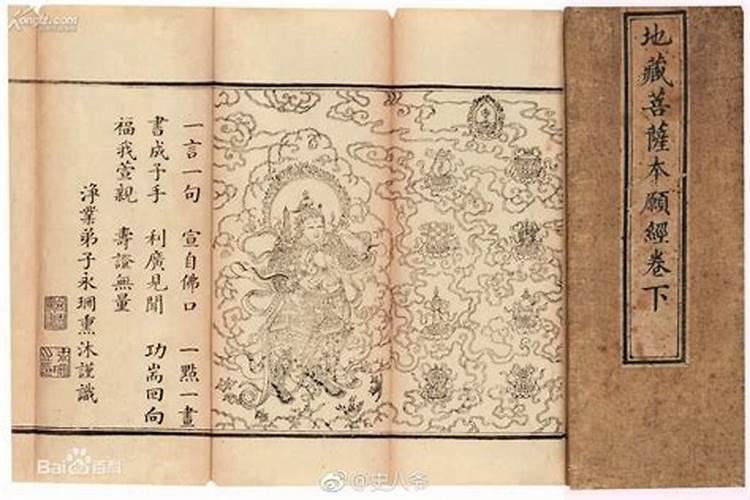 地藏菩薩本願經卷下
一言一句 宣自佛口 一點一畫
書成予手 利廣見聞 功耑回向
福我萱親 壽證無量
淨業弟子永瑆熏沐謹識
Kongfz.com
Bai百科
@史人爷